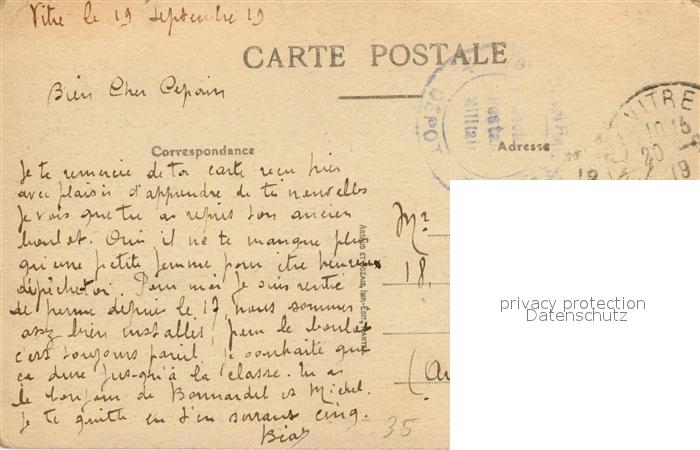 Vitre le 19 Septembre 19
CARTE POSTALE
Bien Cher Copain
DEPOT
VITRE
10 15
20
19
Correspondance
Adresse
Je te remercie de ta carte recu hier
avec plaisir d'apprendre de tes nouvelles
Je vois que tu as repris ton ancien
boulot. Oui il ne te manque plus
qu'une petite femme pour être heureux
dépèche toi. Pour moi je suis rentré
de perme depuis le 17 nous sommes
assez bien installés, pour le boulot
c'est toujours pareil, je souhaite que
ça dure jusqu'à la classe. Tu as
le bonjour de Bonnardel et Michel.
Je te quitte en t'en serrant cinq.
Mr
18,
35
privacy protection
Datenschutz